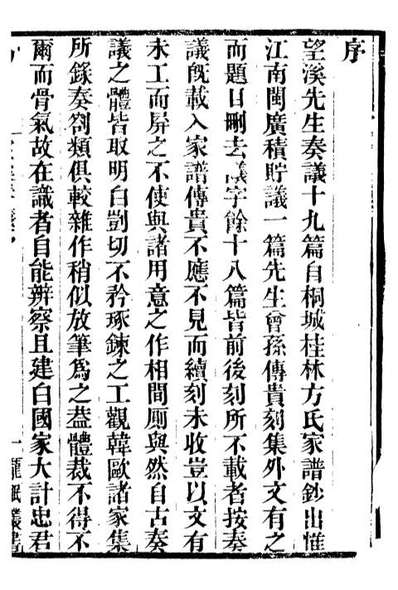 序
望溪先生奏議十九篇自桐城桂林方氏家譜鈔出惟
江南閩廣積貯議一篇先生曾孫傳貴刻集外文有之
而題目刪去議字餘十八篇皆前後刻所不載者按奏
議旣載入家譜傳貴不應不見而續刻未收豈以文有
未工而屏之不使與諸用意之作相間厠與然自古奏
議之體皆取明白剴切不矜琢鍊之工觀韓歐諸家集
所錄奏劄類俱較雜作稍似放筆爲之葢體裁不得不
爾而骨氣故在識者自能辨察且建白國家大計忠君
一
龍眠叢書